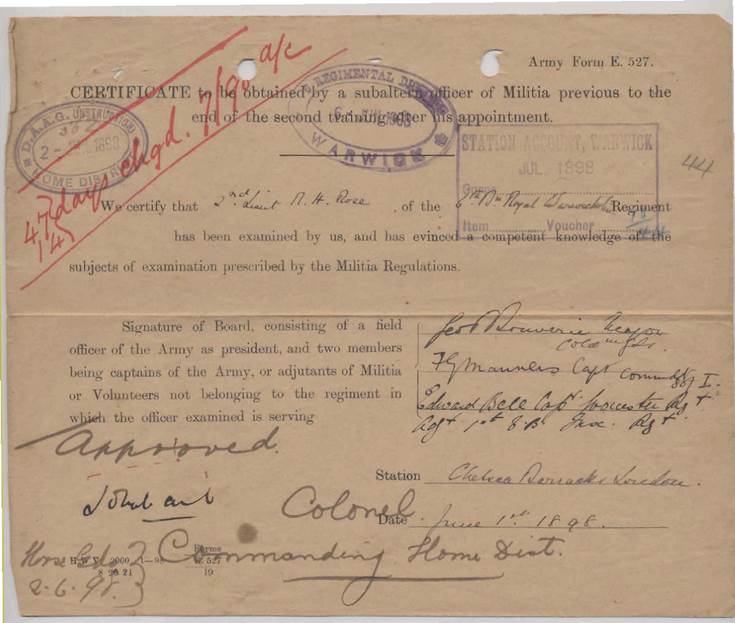 Army Form E. 527.
CERTIFICATE to be obtained by a subaltern officer of Militia previous to the
end of the second training after his appointment.
D.A.A.G. (INSTRUCTION)
HOME DISTRICT
REGIMENTAL DISTRICT
WARWICK
STATION ACCOUNT, WARWICK
JUL. 1898
Item Voucher
44
47 days chgd. 7/98 a/c
We certify that 2nd Lieut R. H. Rose, of the 6th Bn Royal Warwickshire Regiment
has been examined by us, and has evinced a competent knowledge of the
subjects of examination prescribed by the Militia Regulations.
Signature of Board, consisting of a field
officer of the Army as president, and two members
being captains of the Army, or adjutants of Militia
or Volunteers not belonging to the regiment in
which the officer examined is serving
Geo Bouverie Major
Manners Capt
Edward Bell Capt Worcester Regt
Approved.
Station Chelsea Barracks London.
Colonel
Date June 1st 1898.
Commanding Home Dist.
Horse Gds
2.6.98.
H.W.V. 2000
Forms
E. 527
19